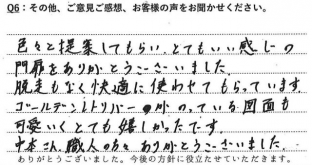 Q6：その他、ご意見ご感想、お客様の声をお聞かせください。
色々と提案してもらい、とてもいい感じの
門扉をありがとうございました。
脱走もなく快適に使わせてもらっています。
ゴールデンレトリバーがのっている図面も
可愛いくとても嬉しかったです。
中本さん、職人の方々ありがとうございました。
ありがとうございました。今後の方針に役立たせていただきます。